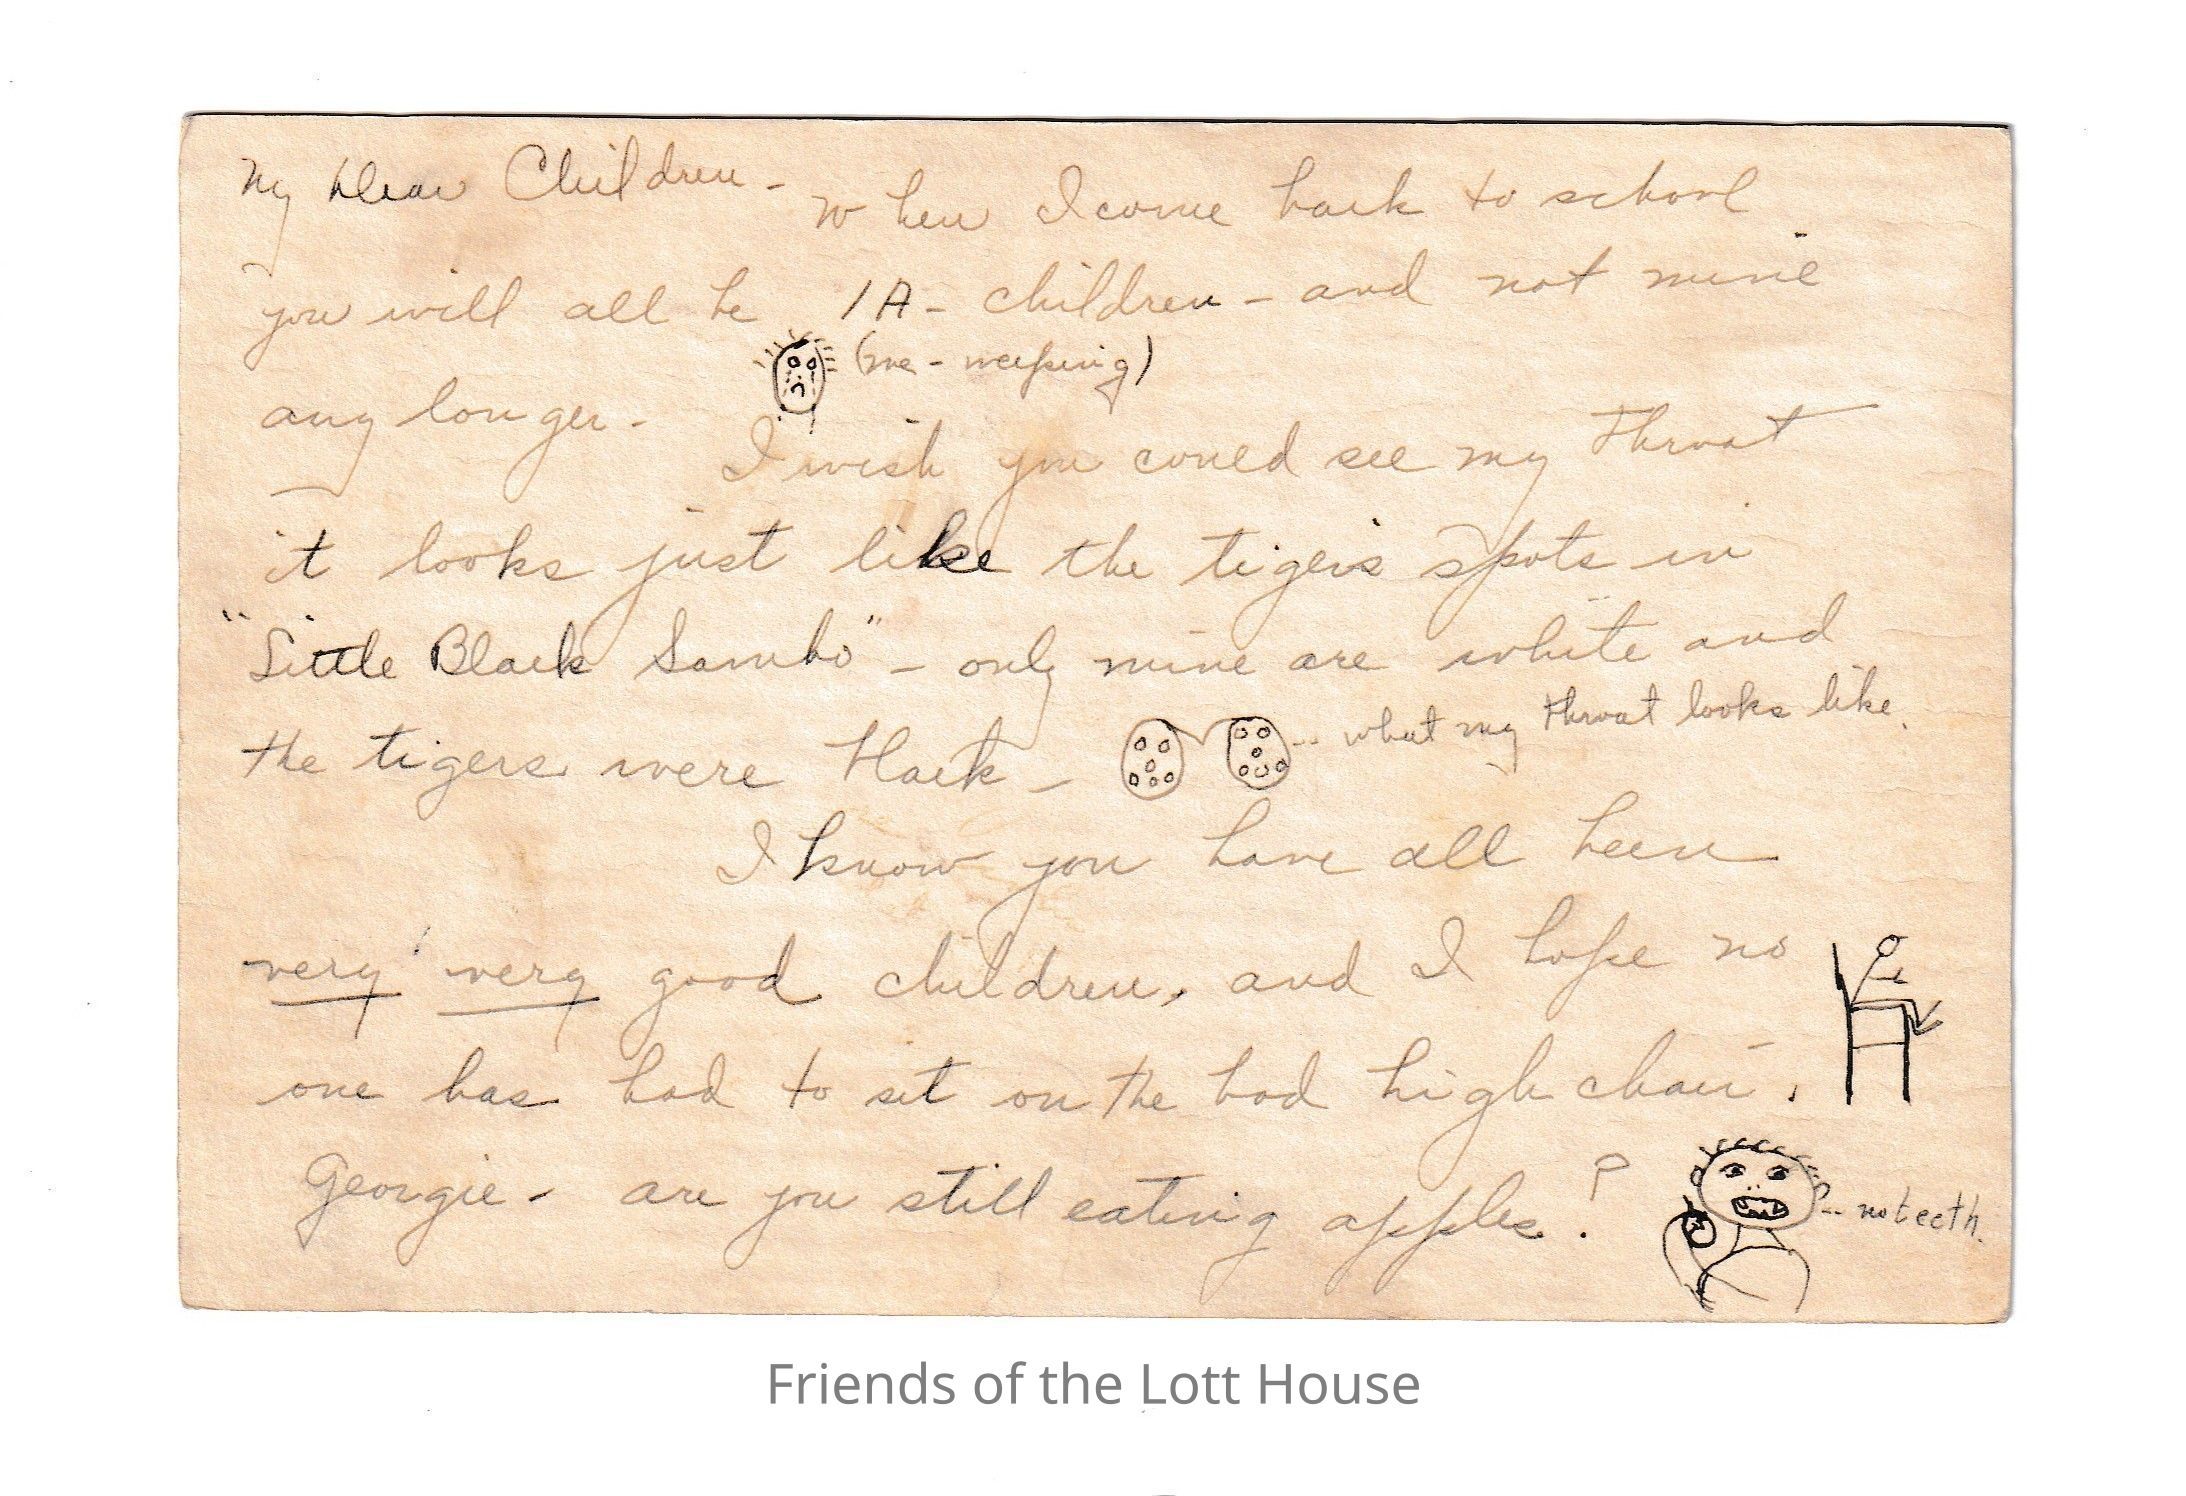 My Dear Children -
When I come back to school
you will all be 1A - children - and not mine
(me - weeping)
any longer -
I wish you could see my throat
it looks just like the tigers spots in
"Little Black Sambo" - only mine are white and
the tigers were black -
-- what my throat looks like.
I know you have all been
very! very good children, and I hope no
one has had to sit on the bad high chair.
Georgie - are you still eating apples?
-- no teeth.
Friends of the Lott House